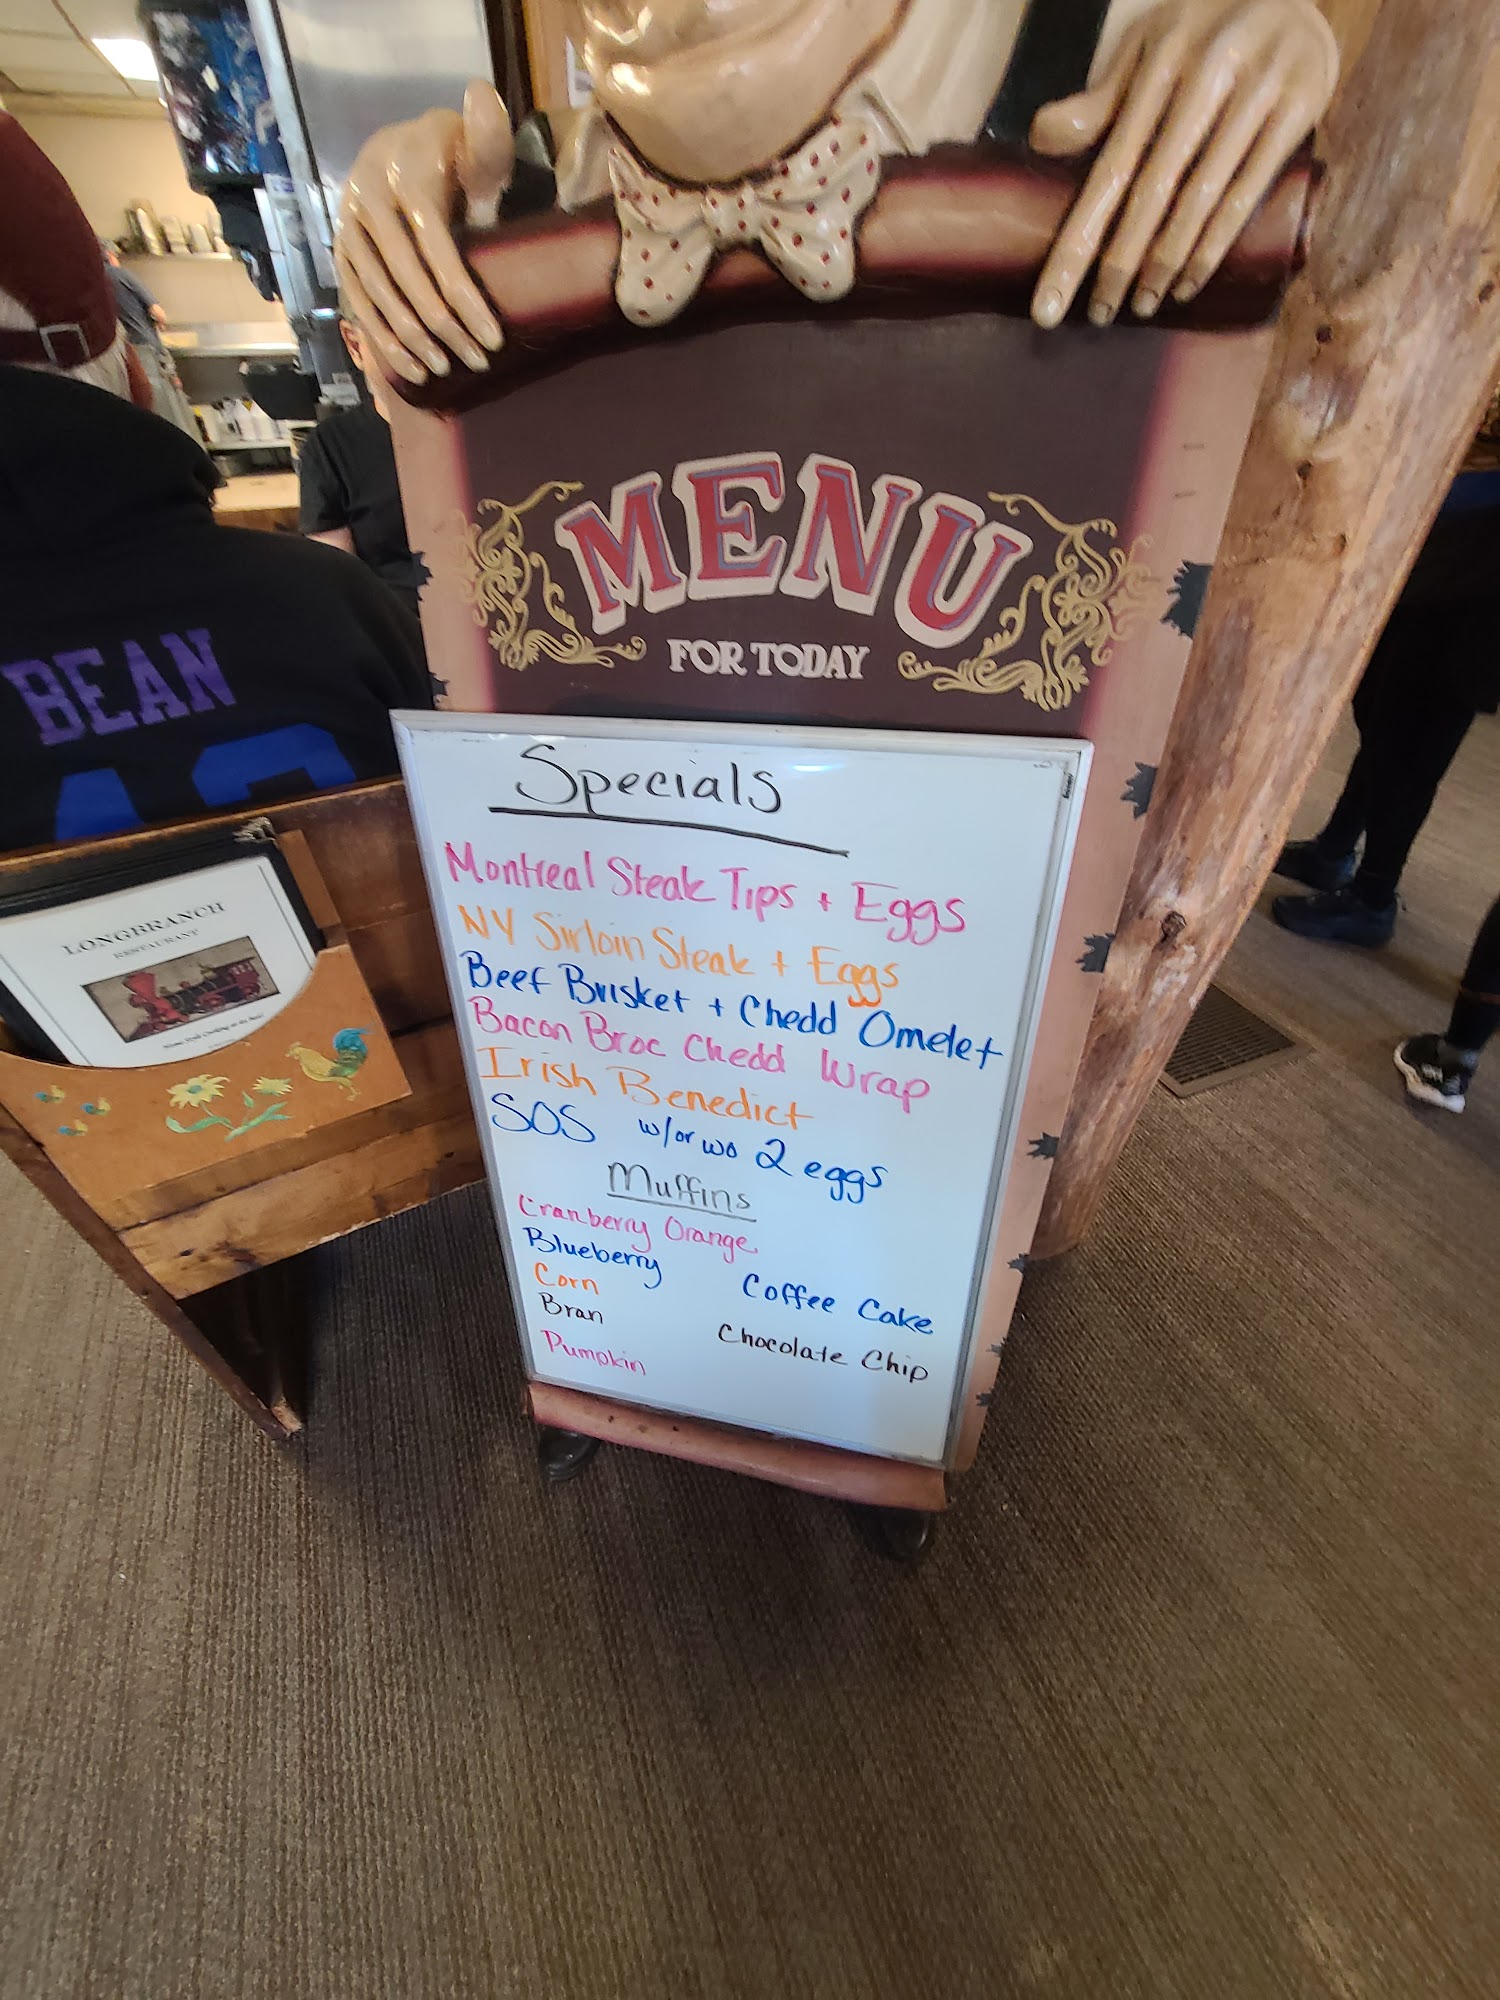 MENU
FOR TODAY
Specials
Montreal Steak Tips + Eggs
NY Sirloin Steak + Eggs
Beef Brisket + Chedd Omelet
Bacon Broc Chedd Wrap
Irish Benedict
SOS w/or wo 2 eggs
Muffins
Cranberry Orange
Blueberry
Coffee Cake
Corn
Bran
Chocolate Chip
Pumpkin
BEAN
LONGBRANCH
RESTAURANT